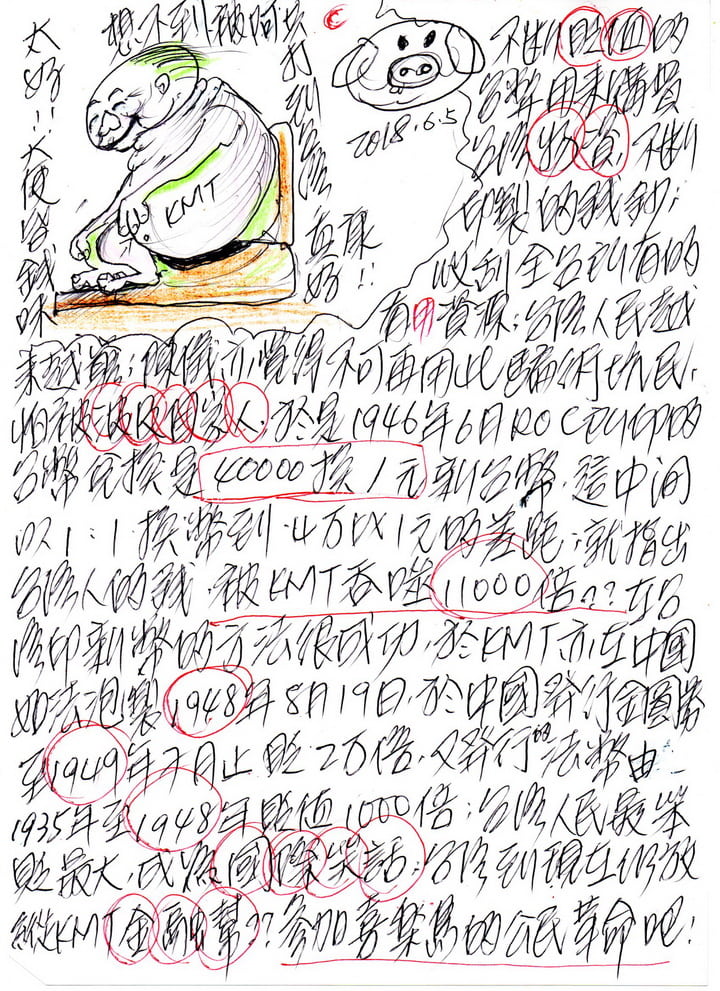 太好!!
想不到被阿共
打到台灣
KMT
2018.6.5
不斷貶值的
台幣用來購買
台灣物資, 不斷
印製的錢鈔;
收刮全台所有的
有用資源; 台灣人民越
來越窮; 陳儀亦覺得不可再用此騙術坑民,
怕被 國家人. 於是1946年6月ROC 印的
台幣兌換是40000換1元新台幣. 這中間
以1:1換幣到4万以1元的差距; 就指出
台灣人的錢, 被KMT吞噬11000倍?? 在台
灣印新幣的方法很成功, 於KMT亦在中國
如法泡製1948年8月19日, 於中國發行金圓券
至1949年7月止貶2万倍. 又發行的法幣由
1935年至1948年貶值1000倍; 台灣人民最笨
貶最大, 成為國際笑話; 台灣到現在仍放
縱KMT金融幫?? 參加喜樂島的公民革命吧!